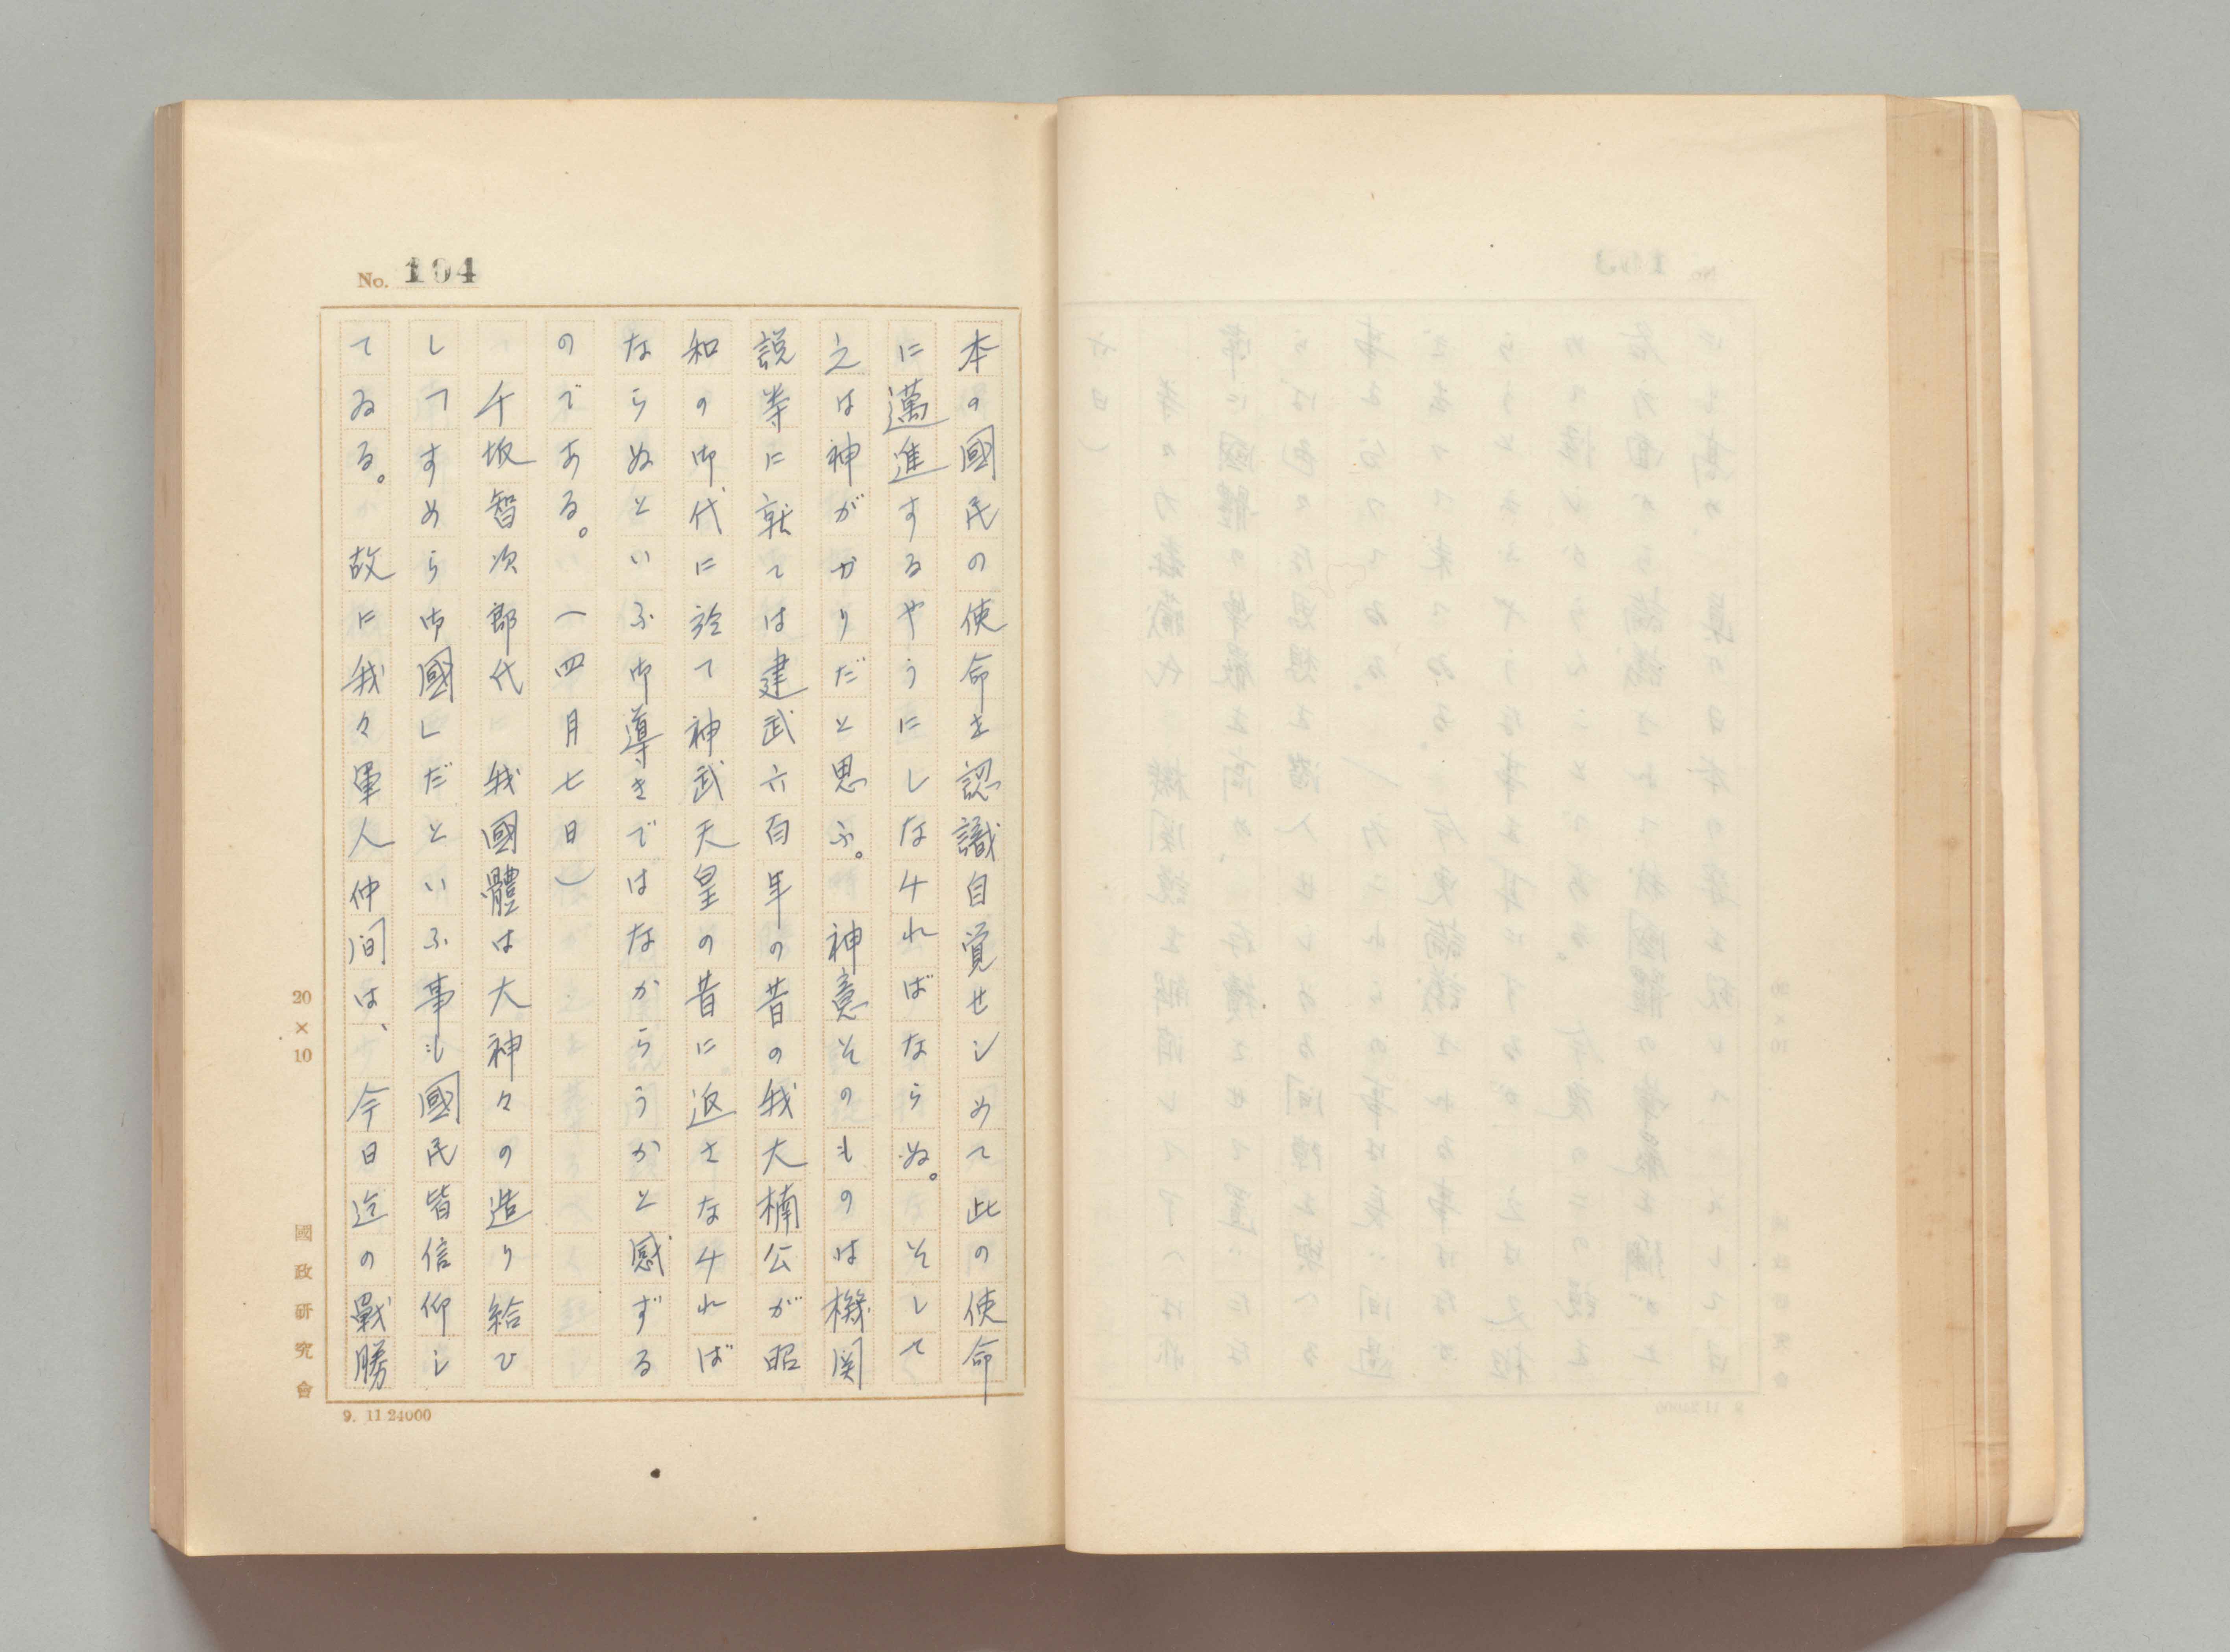 No. 104
本の國民の使命を認識自覚せしめて此の使命
に邁進するやうにしなければならぬ。そして
之は神がかりだと思ふ。神意そのものは機関
説等に就ては建武六百年の昔の我大楠公が昭
和の御代に於て神武天皇の昔に返さなければ
ならぬといふ御導きではなからうかと感ずる
のである。(四月七日)
千坂智次郎代 我國體は大神々の造り給ひ
してすめら御國しだといふ事も國民皆信仰し
てゐる。故に我々軍人仲间は、今日迄の戰勝
20×10
國政研究會
9. 11 24000